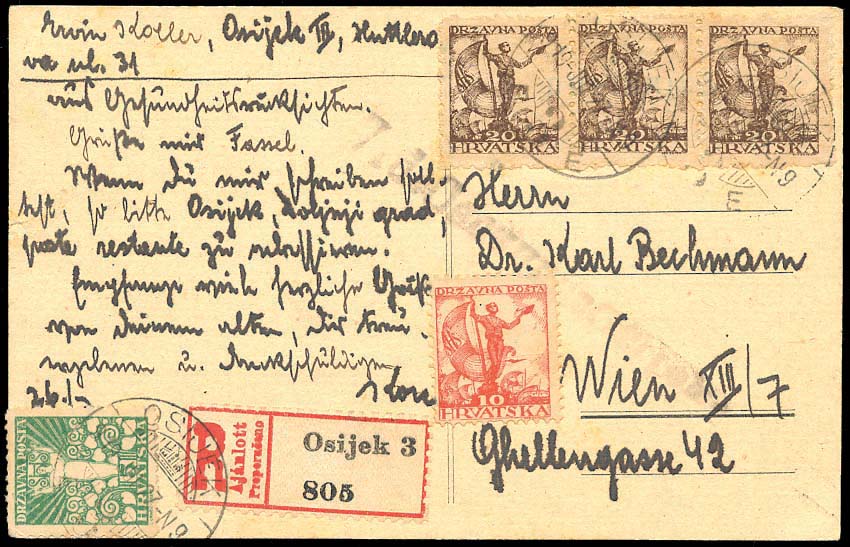 Ervin Koller, Osijek III, Huttlero
va ul. 31
aus Gesundheitsrücksichten.
Grüße mir Fassel.
Wenn Du mir schreiben soll-
test, so bitte Osijek, Doljnji grad,
poste restante zu adressieren.
Empfange viele herzliche Grüße
von deinem alten, dir treu-
ergebenen u. dankschuldigen
26./-
DRŽAVNA POŠTA
20
HRVATSKA
DRŽAVNA POŠTA
20
HRVATSKA
DRŽAVNA POŠTA
20
HRVATSKA
Herrn
Dr. Karl Bechmann
Wien XIII/7
Ghellengasse 42
DRŽAVNA POŠTA
10
HRVATSKA
DRŽAVNA POŠTA
15
HRVATSKA
OSIJEK
Ajánlott
Preporučeno
Osijek 3
805